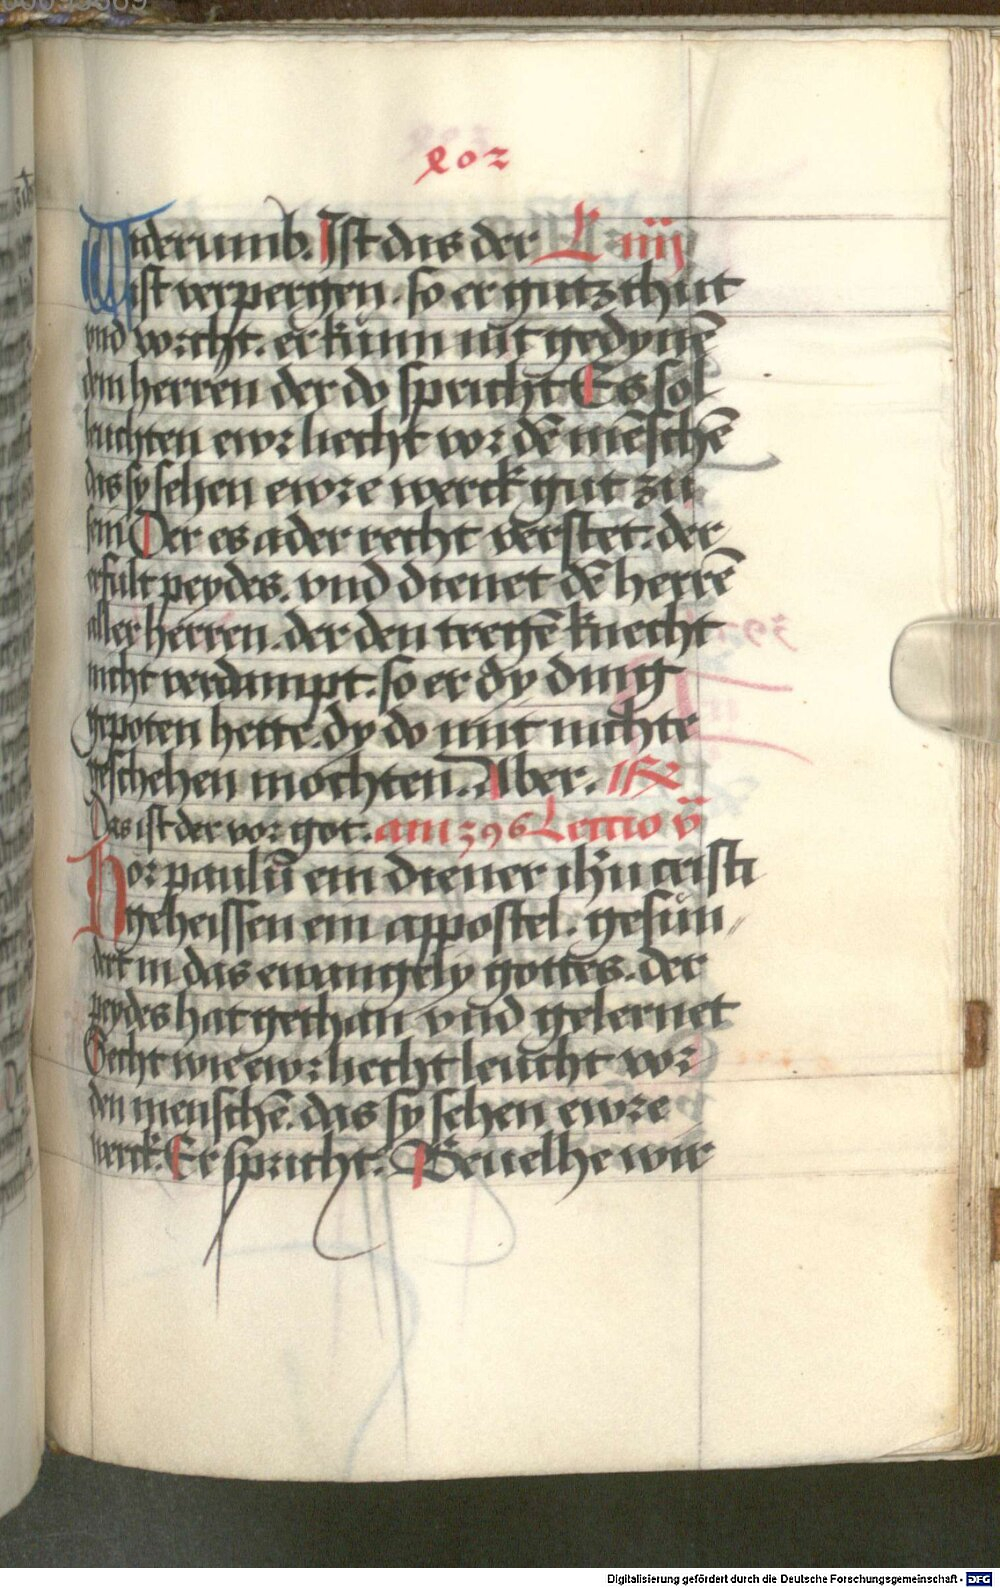 402
Widerumb. Ist das der L iiij
ist verpergen. so er gutz thut
vnd vorcht. er kunn nit gedynē
dem herren der do spricht Es sol
leuchten ewr liecht vor dē menschē
das sy sehen ewre werck gut zu
sein Der es ader recht verstet. der
erfult peydes. vnd dienet dē herrē
aller herren. der den tregē knecht
nicht verdampt. so er dy ding
gepoten hette. dy do mit nichte
geschehen mochten. Aber.
Das ist der vor got. am 396 Lectio v
Hor paulū ein diener ihū cristi
geheissen ein appostel. gesun„
dert in das ewangely gottes. der
peydes hat gethan vnd gelernet
Secht wie ewr liecht leucht vor
den menschē. das sy sehen ewre
werck. Er spricht. Beuelhe wir
Digitalisierung gefördert durch die Deutsche Forschungsgemeinschaft - DFG